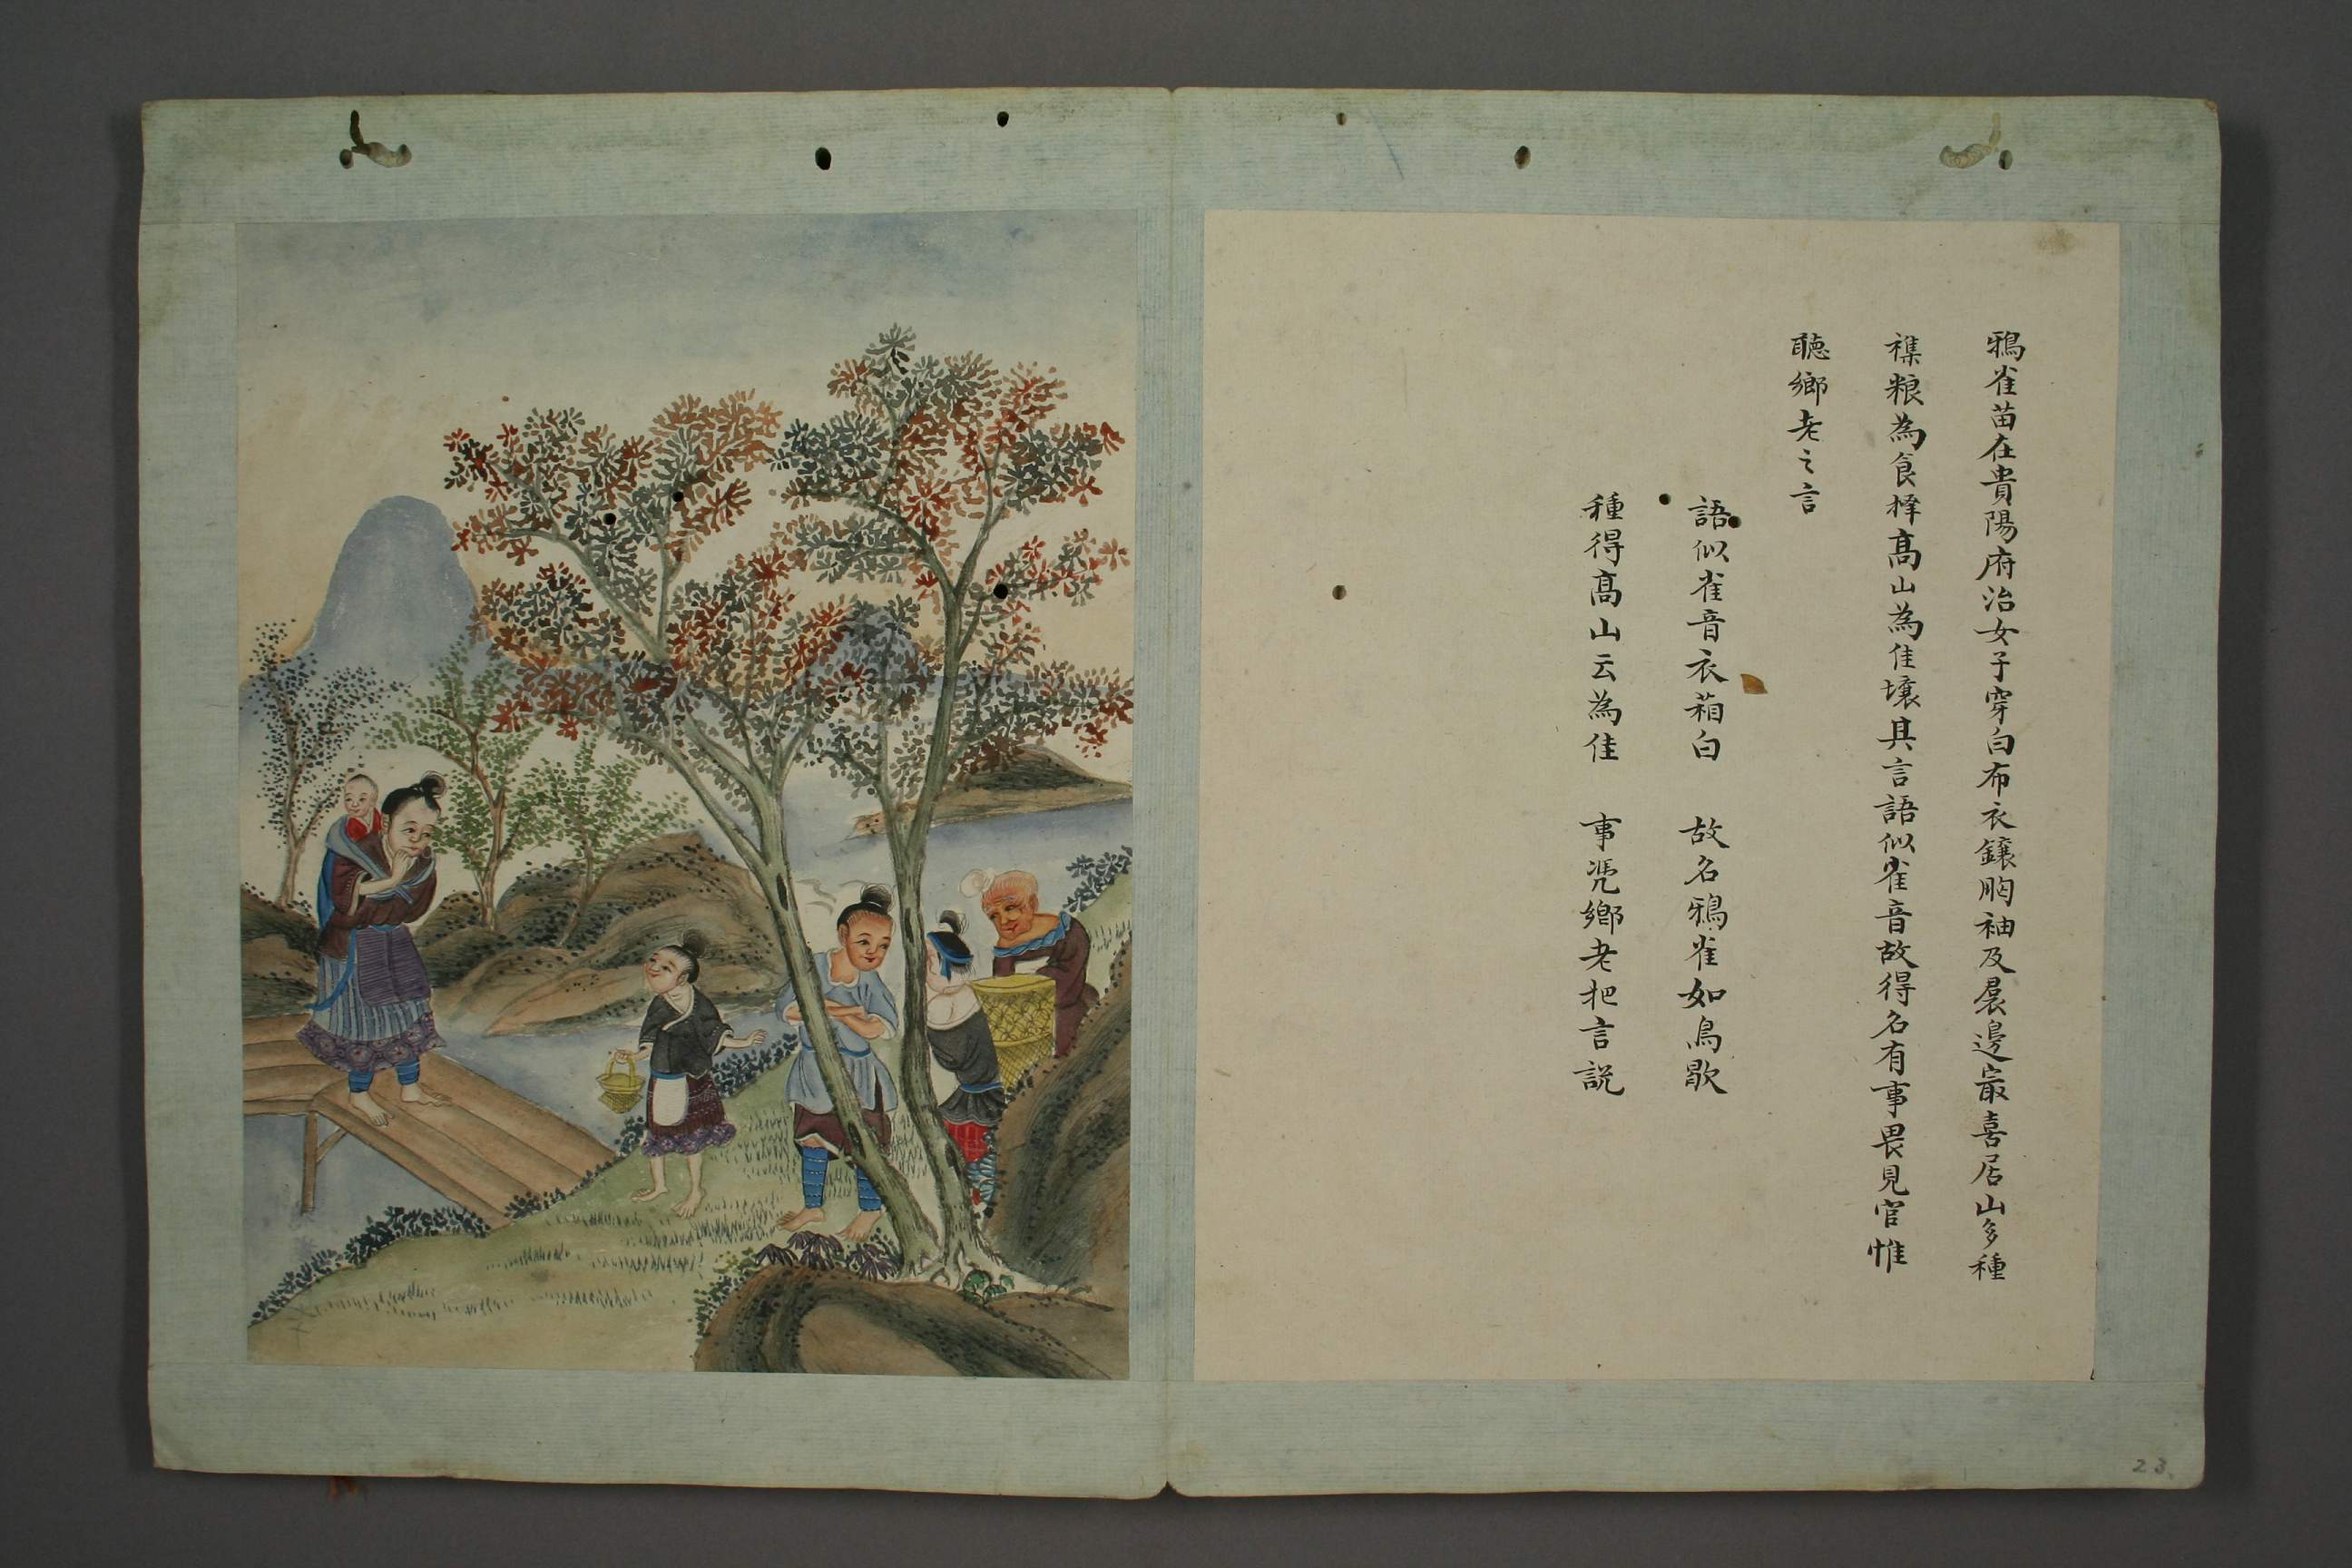 鴉雀苗在貴陽府治女子穿白布衣鑲胸袖及裠邊㝡喜居山多種
襍粮為食擇高山為佳壤其言語似雀音故得名有事畏見官惟
聽鄉老之言
語似雀音衣箱白　故名鴉雀如鳥歌
種得高山云為佳　事凴鄉老把言説
23.